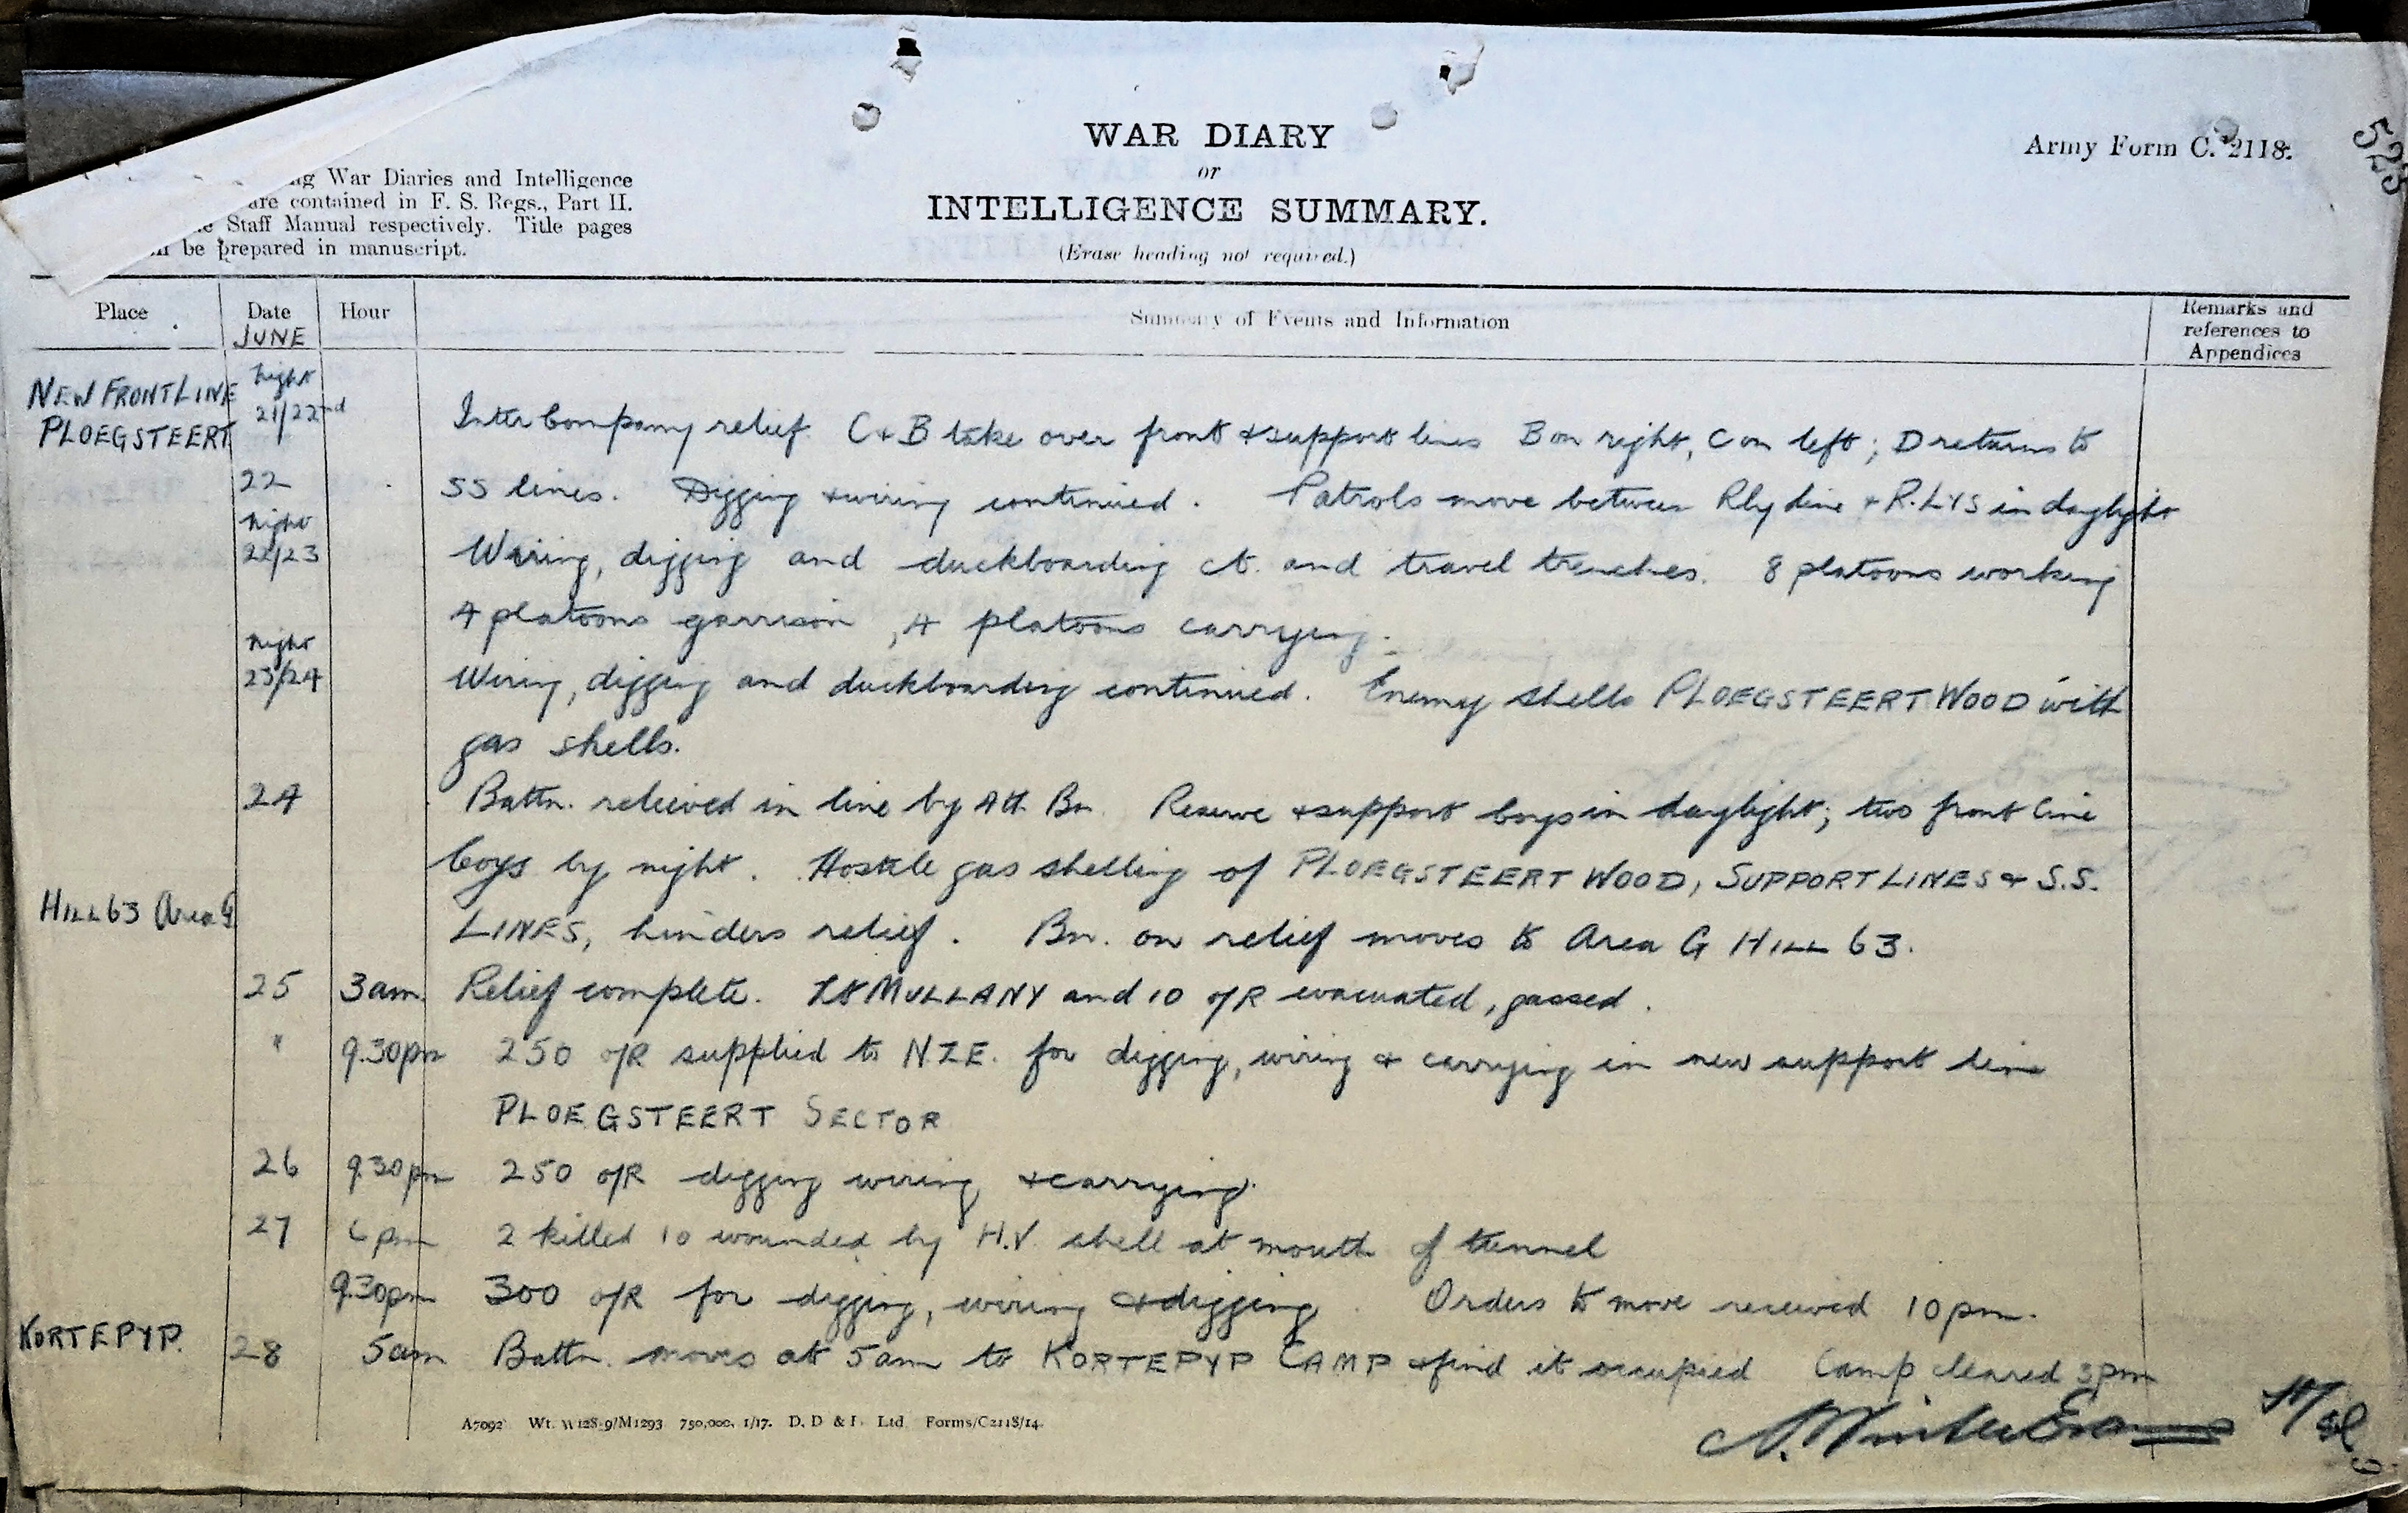 WAR DIARY
or
INTELLIGENCE SUMMARY.
(Erase heading not required.)
Army Form C. 2118.
523
War Diaries and Intelligence
are contained in F. S. Regs., Part II.
Staff Manual respectively. Title pages
be prepared in manuscript.
Place
Date
JUNE
Hour
Summary of Events and Information
Remarks and
references to
Appendices
NEW FRONT LINE
PLOEGSTEERT
night
21/22nd
Inter Company relief. C & B take over front & support lines B on right, C on left; D returns to
22
SS lines. Digging & wiring continued. Patrols move between Rly line & R. LYS in daylight
night
22/23
Wiring, digging and duckboarding ct. and travel trenches. 8 platoons working
4 platoons garrison, 4 platoons carrying.
night
23/24
Wiring, digging and duckboarding continued. Enemy shells PLOEGSTEERT WOOD with
gas shells.
24
Battn. relieved in line by 4th Bn. Reserve & support Coys in daylight; two front line
Coys by night. Hostile gas shelling of PLOEGSTEERT WOOD, SUPPORT LINES & S.S.
HILL 63 Area G
LINES, hinders relief. Bn. on relief moves to Area G HILL 63.
25 3am. Relief complete. Lt MULLANY and 10 o/R evacuated, gassed.
" 9.30pm 250 o/R supplied to NZE. for digging, wiring & carrying in new support line
PLOEGSTEERT SECTOR
26 9.30pm 250 o/R digging wiring & carrying.
27 6pm 2 killed 10 wounded by H.V. shell at mouth of tunnel
9.30pm 300 o/R for digging, wiring & digging. Orders to move received 10pm.
KORTEPYP. 28 5am Battn. moves at 5am to KORTEPYP CAMP & find it occupied Camp cleared 3pm
A7092 Wt. W128-9/M1293 750,000. 1/17. D. D & L Ltd. Forms/C2118/14.
Winter Evans